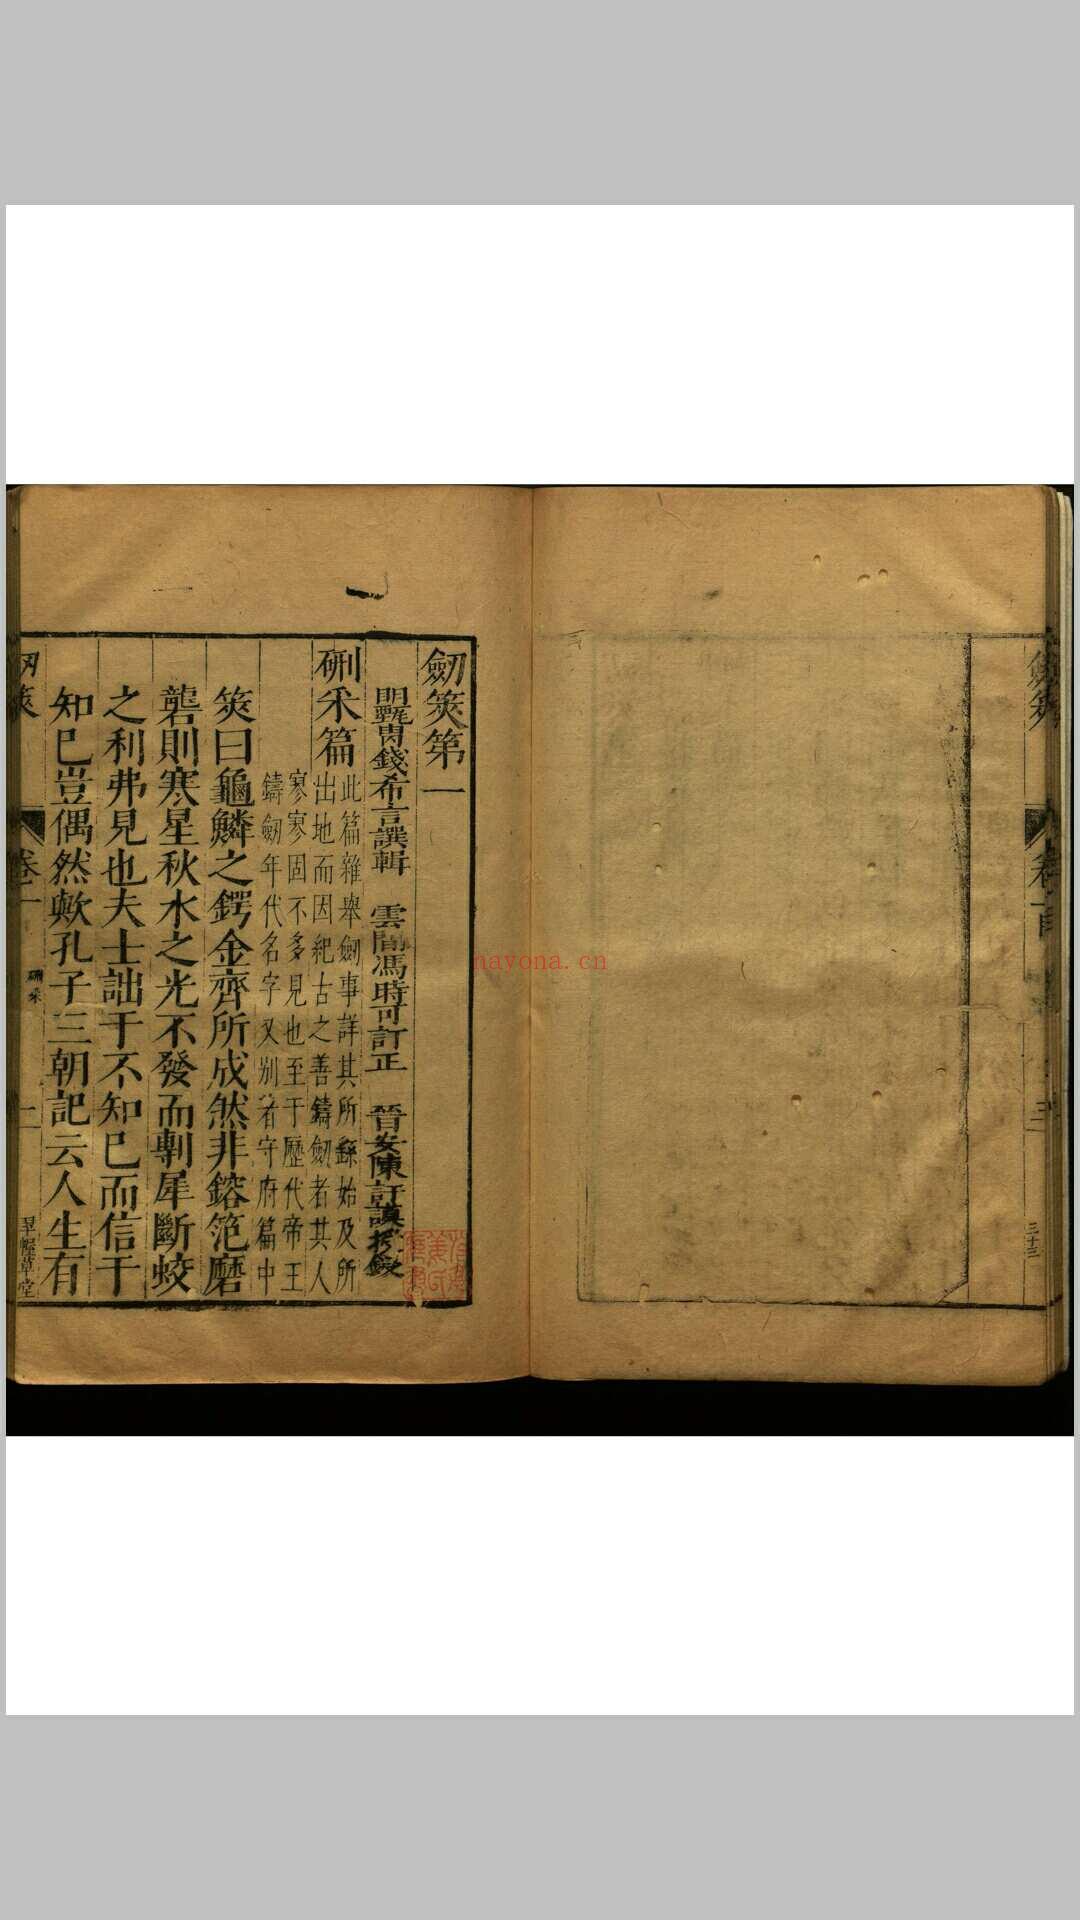 劒筴
三十三
劒筴第一
明 冑錢希言譔輯 雲間馮時可訂正 晉安陳訏謨挍鋟
硎采篇
此篇雜舉劒事詳其所繇始及所
出地而因紀古之善鑄劒者其人
寥寥固不多見也至于歷代帝王
鑄劒年代名字又别著守府篇中
筴曰龜鱗之鍔金齊所成然非鎔笵磨
礲則寒星秋水之光不發而剸犀斷蛟
之利弗見也夫士詘于不知巳而信于
知巳豈偶然歟孔子三朝記云人生有
筴
卷一
硎采
一
翠幄草堂
nayona.cn